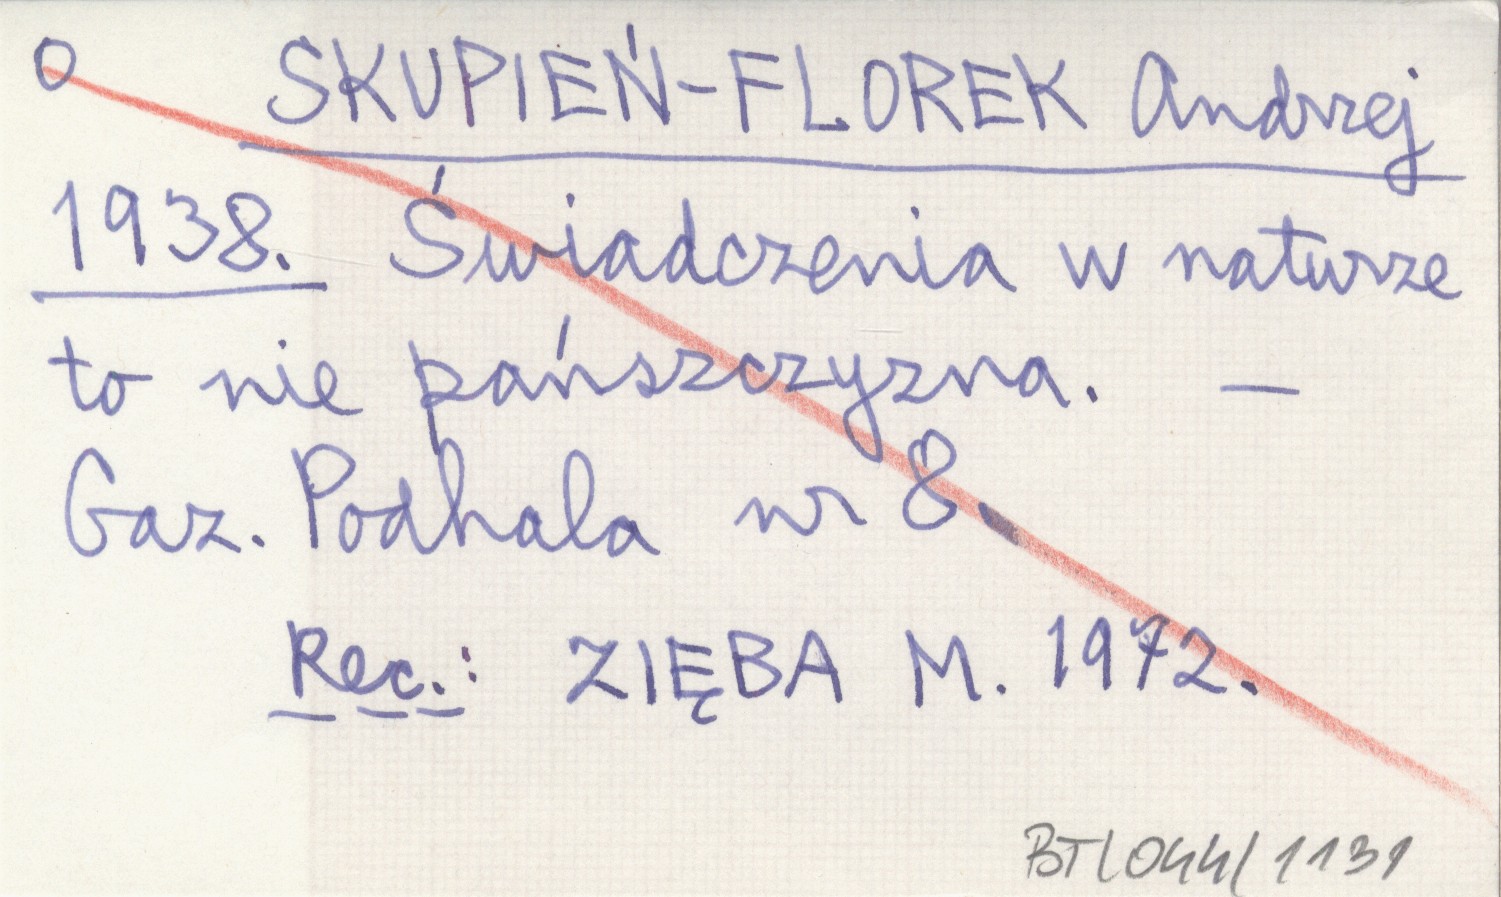 O SKUPIEŃ-FLOREK Andrzej
1938. Świadczenia w naturze
to nie pańszczyzna. —
Gaz. Podhala nr 8.
Rec.: ZIĘBA M. 1972.
BT/044/1131